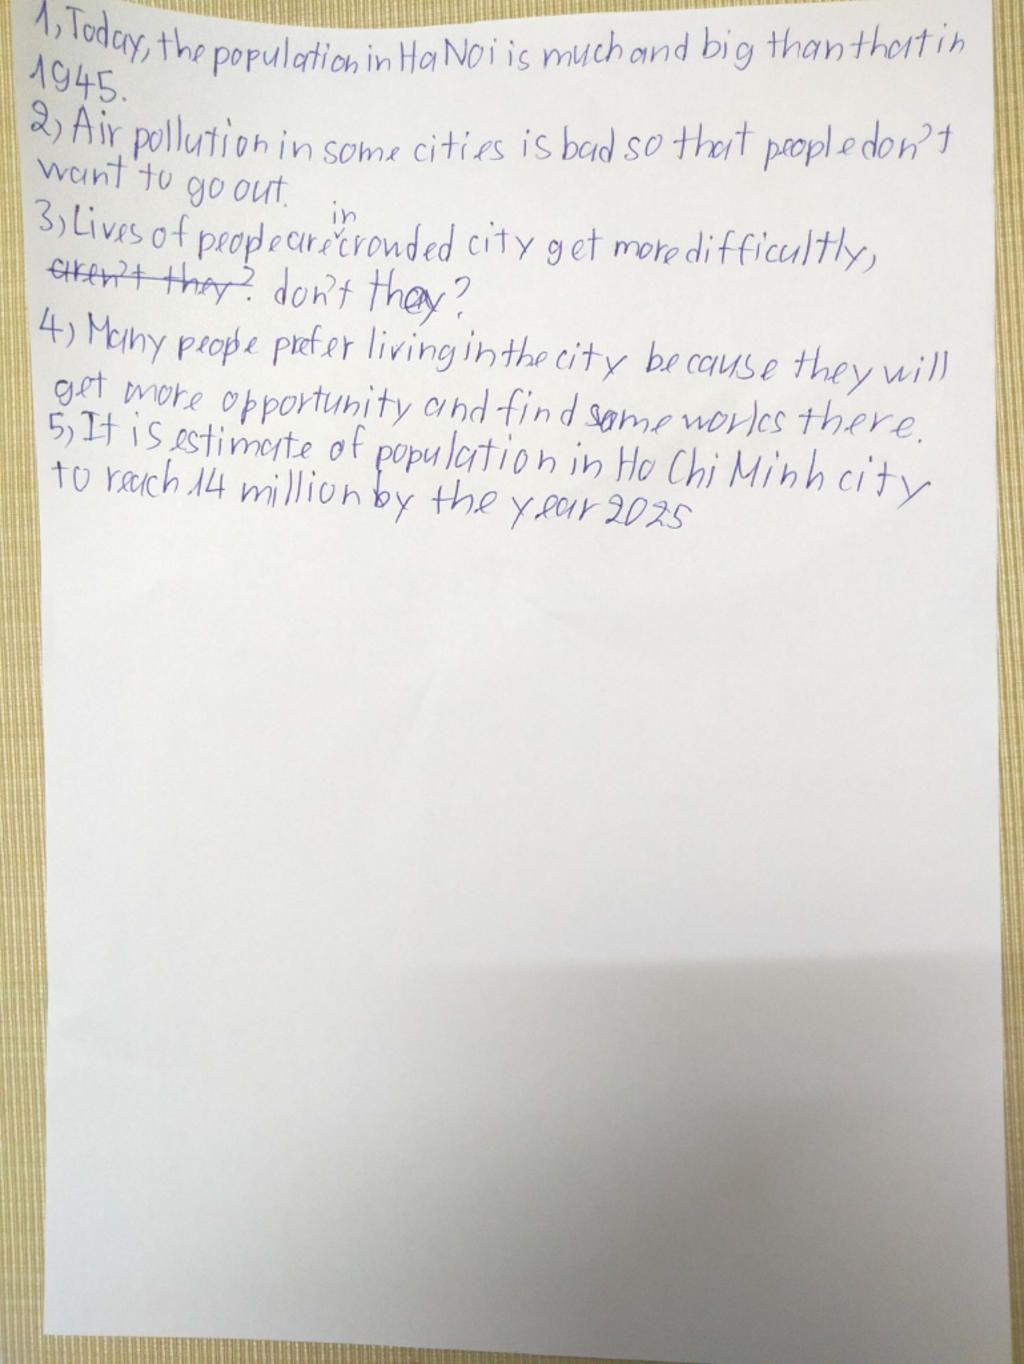 1, Today, the population in Ha Noi is much and big than that in
1945.
2, Air pollution in some cities is bad so that people don't
want to go out.
in
3, Lives of people are crowded city get more difficultly,
aren't they? don't they?
4, Many people prefer living in the city because they will
get more opportunity and find some works there.
5, It is estimate of population in Ho Chi Minh city
to reach 14 million by the year 2025